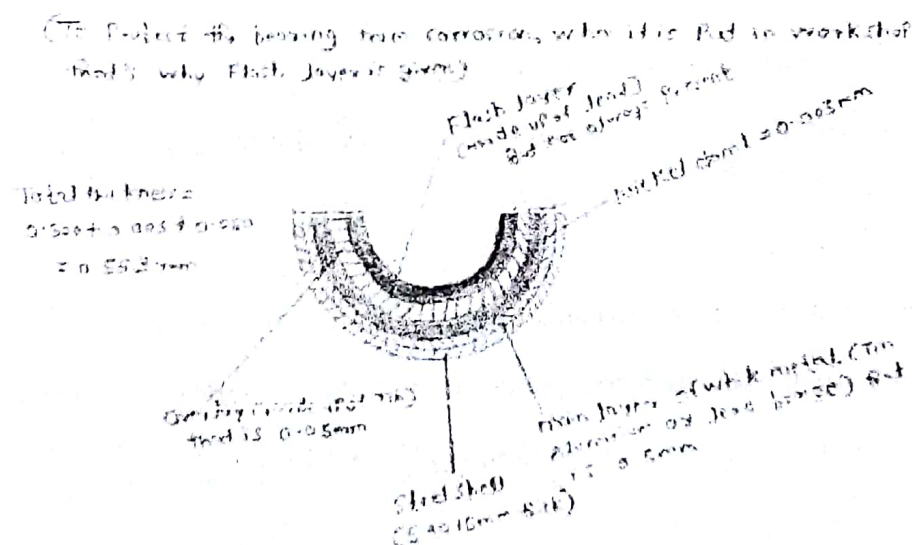 (To Protect the bearing from corrosion, when it is Put in workshop
that's why Flash layer is given)
Flash layer
(made up of lead)
But not always present
nickel dam = 0.003mm
Total thickness =
= 0.553mm
Overlay
that is 0.05mm
layer of white metal (Tin
Aluminium or lead bronze) that
is 0.5mm
Steel shell